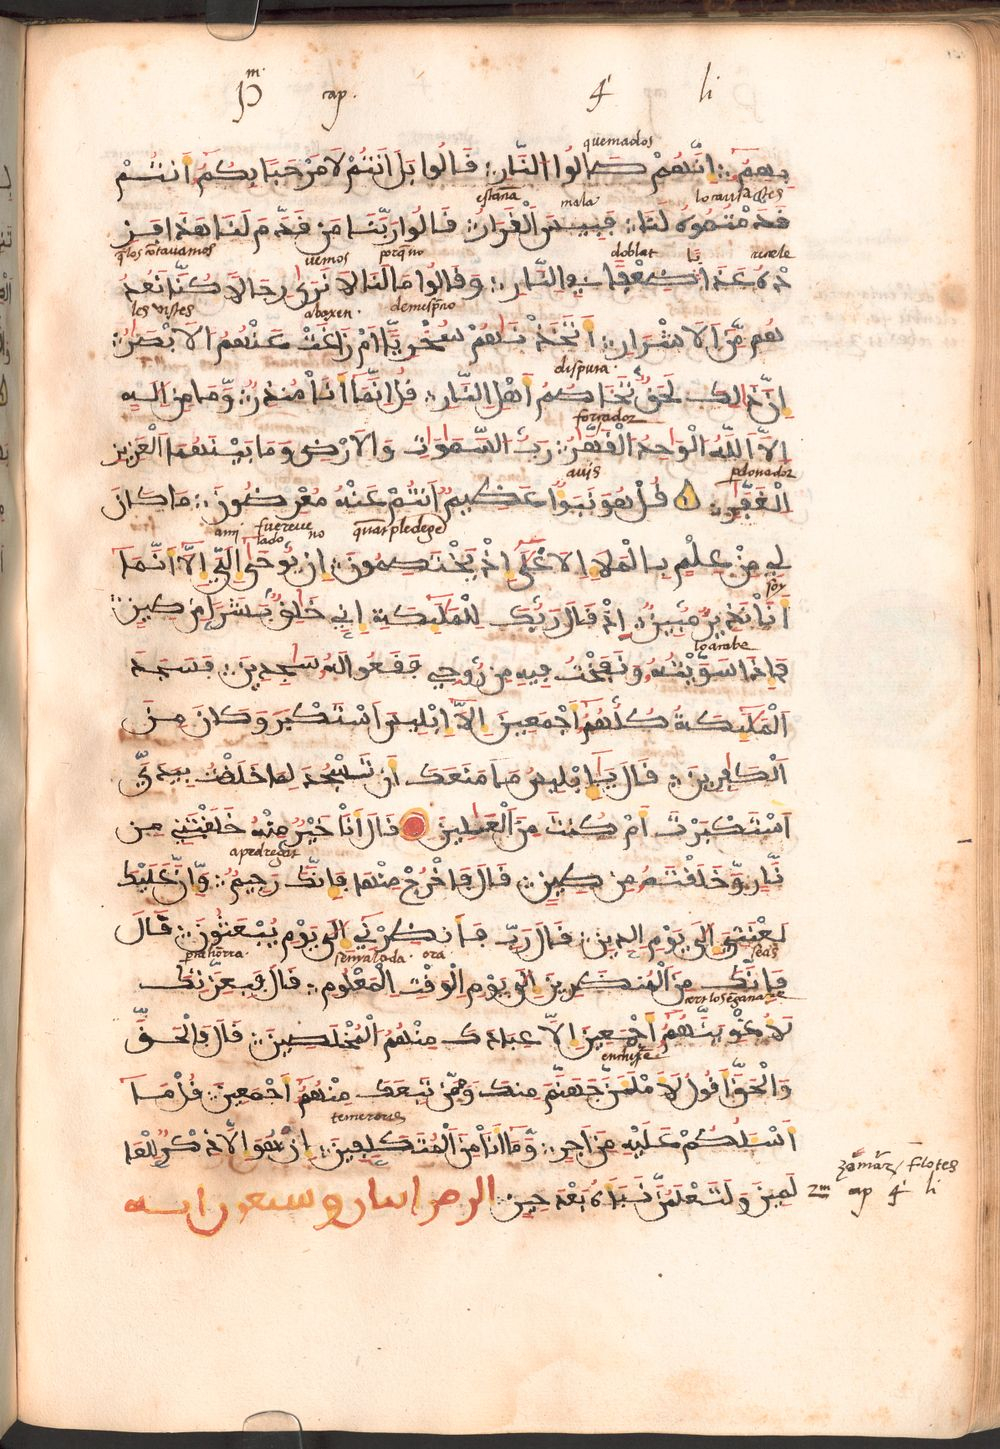 pm cap. 4 li
quemados
بهم إنهم صالوا النار قالوا بل أنتم لا مرحبا بكم أنتم
estāna mala
قدمتموه لنا فبيس القرار قالوا ربنا من قدم لنا هذا فز
vemos porq̄no doblat
ده عذابا ضعفا في النار وقالوا ما لنا لا نرى رجالا كنا نعد
les abaxen. demespño
هم من الاشرار أتخذناهم سخريا أم زاغت عنهم الابصر
disputa
إن ذالك لحق تخاصم أهل النار قل إنما أنا منذر وما من اله
forçador
إلا الله الوحد القهر رب السموت والارض وما بينهما العزيز
auis pdonador
الغفر قل هو نبؤا عظيم أنتم عنه معرضون ما كان
ami fuereue lado no quāt pledege
لي من علم بالملإ الاعلى إذ يختصمون إن يوحى إلي إلا أنما
soy
أنا نذير مبين إذ قال ربك للمليكة إني خلق بشرا من طين
فإذا سويته ونفخت فيه من روحي فقعوا له سجدين فسجد
المليكة كلهم أجمعين إلا إبليس استكبر وكان من
الكفرين قال يا إبليس ما منعك أن تسجد لما خلقت بيدي
استكبرت أم كنت من العلين قال أنا خير منه خلقتني من
apedregat
نار وخلقته من طين قال فاخرج منها فإنك رجيم وإن عليك
لعنتي إلى يوم الدين قال رب فأنظرني إلى يوم يبعثون قال
senyalada. ora seas
فإنك من المنظرين إلى يوم الوقت المعلوم قال فبعزتك
لاغوينهم أجمعين إلا عبادك منهم المخلصين قال فالحق
enchire
والحق أقول لاملأن جهنم منك وممن تبعك منهم أجمعين قل ما
temerarios
أسئلكم عليه من أجر وما أنا من المتكلفين إن هو إلا ذكر للعا
zomar / flotes
لمين ولتعلمن نبأه بعد حين الزمر اثنان وسبعون اية 2m cap 4 li